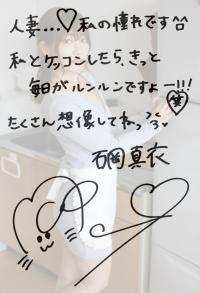 人妻...♡私の憧れです^^
私とケッコンしたら、きっと
毎日がルンルンですよー!!!
笑
たくさん想像してねっ
石岡真衣